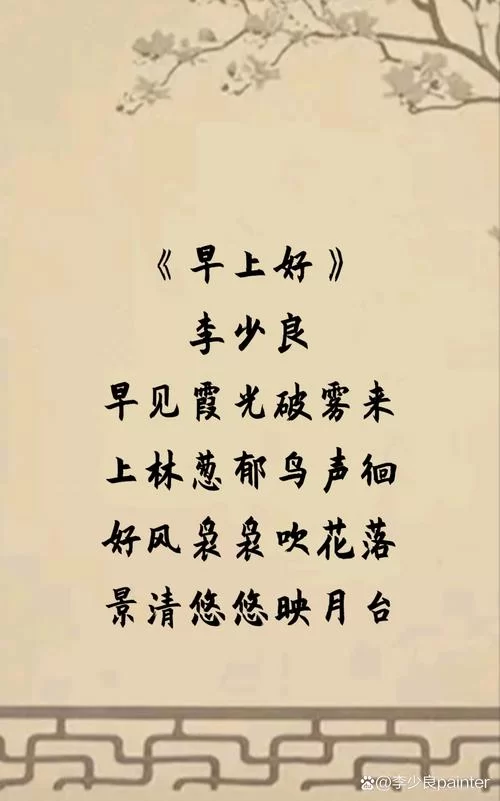 《早上好》
李少良
早见霞光破雾来
上林葱郁鸟声徊
好风袅袅吹花落
景清悠悠映月台
@李少良painter